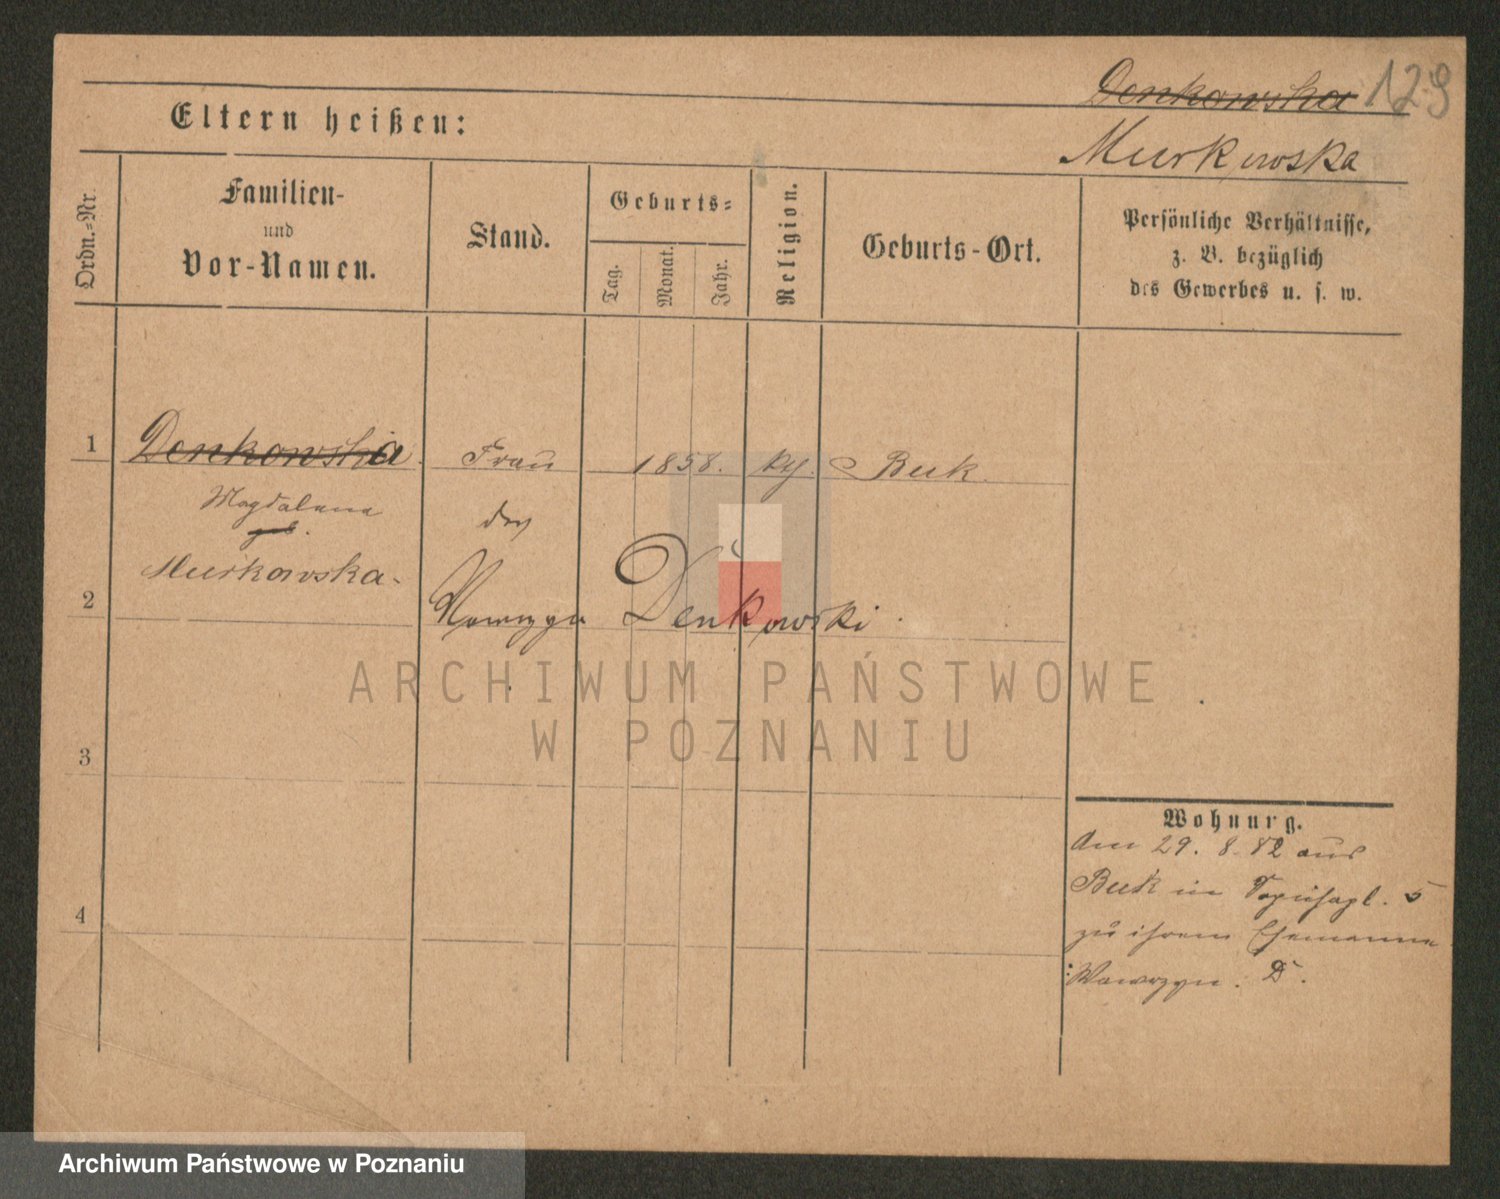 Denkowska 129
Eltern heißen:
Murkowska
Ordn.=Nr.
Familien-
und
Vor-Namen.
Stand.
Geburts=
Tag.
Monat.
Jahr.
Religion.
Geburts-Ort.
Persönliche Verhältnisse,
z. B. bezüglich
des Gewerbes u. s. w.
1 Denkowska Frau 1858. kth. Buk.
Magdalena des
geb.
Murkowska.
2 Wawrzyn Denkowski.
ARCHIWUM PAŃSTWOWE
W POZNANIU
3
Wohnung.
Am 29. 8. 82 aus
Buk in 5
4
zu ihrem Ehemanne
Wawrzyn. D.
Archiwum Państwowe w Poznaniu